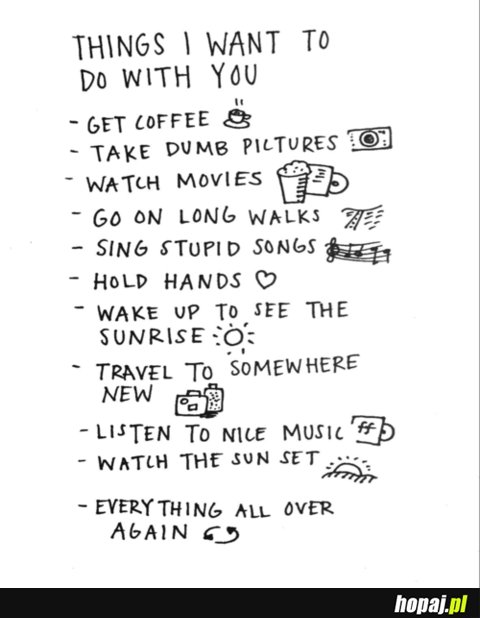 THINGS I WANT TO
DO WITH YOU
- GET COFFEE
- TAKE DUMB PICTURES
- WATCH MOVIES
- GO ON LONG WALKS
- SING STUPID SONGS
- HOLD HANDS
- WAKE UP TO SEE THE
SUNRISE
- TRAVEL TO SOMEWHERE
NEW
- LISTEN TO NICE MUSIC
ff
- WATCH THE SUN SET
- EVERYTHING ALL OVER
AGAIN
hopaj.pl